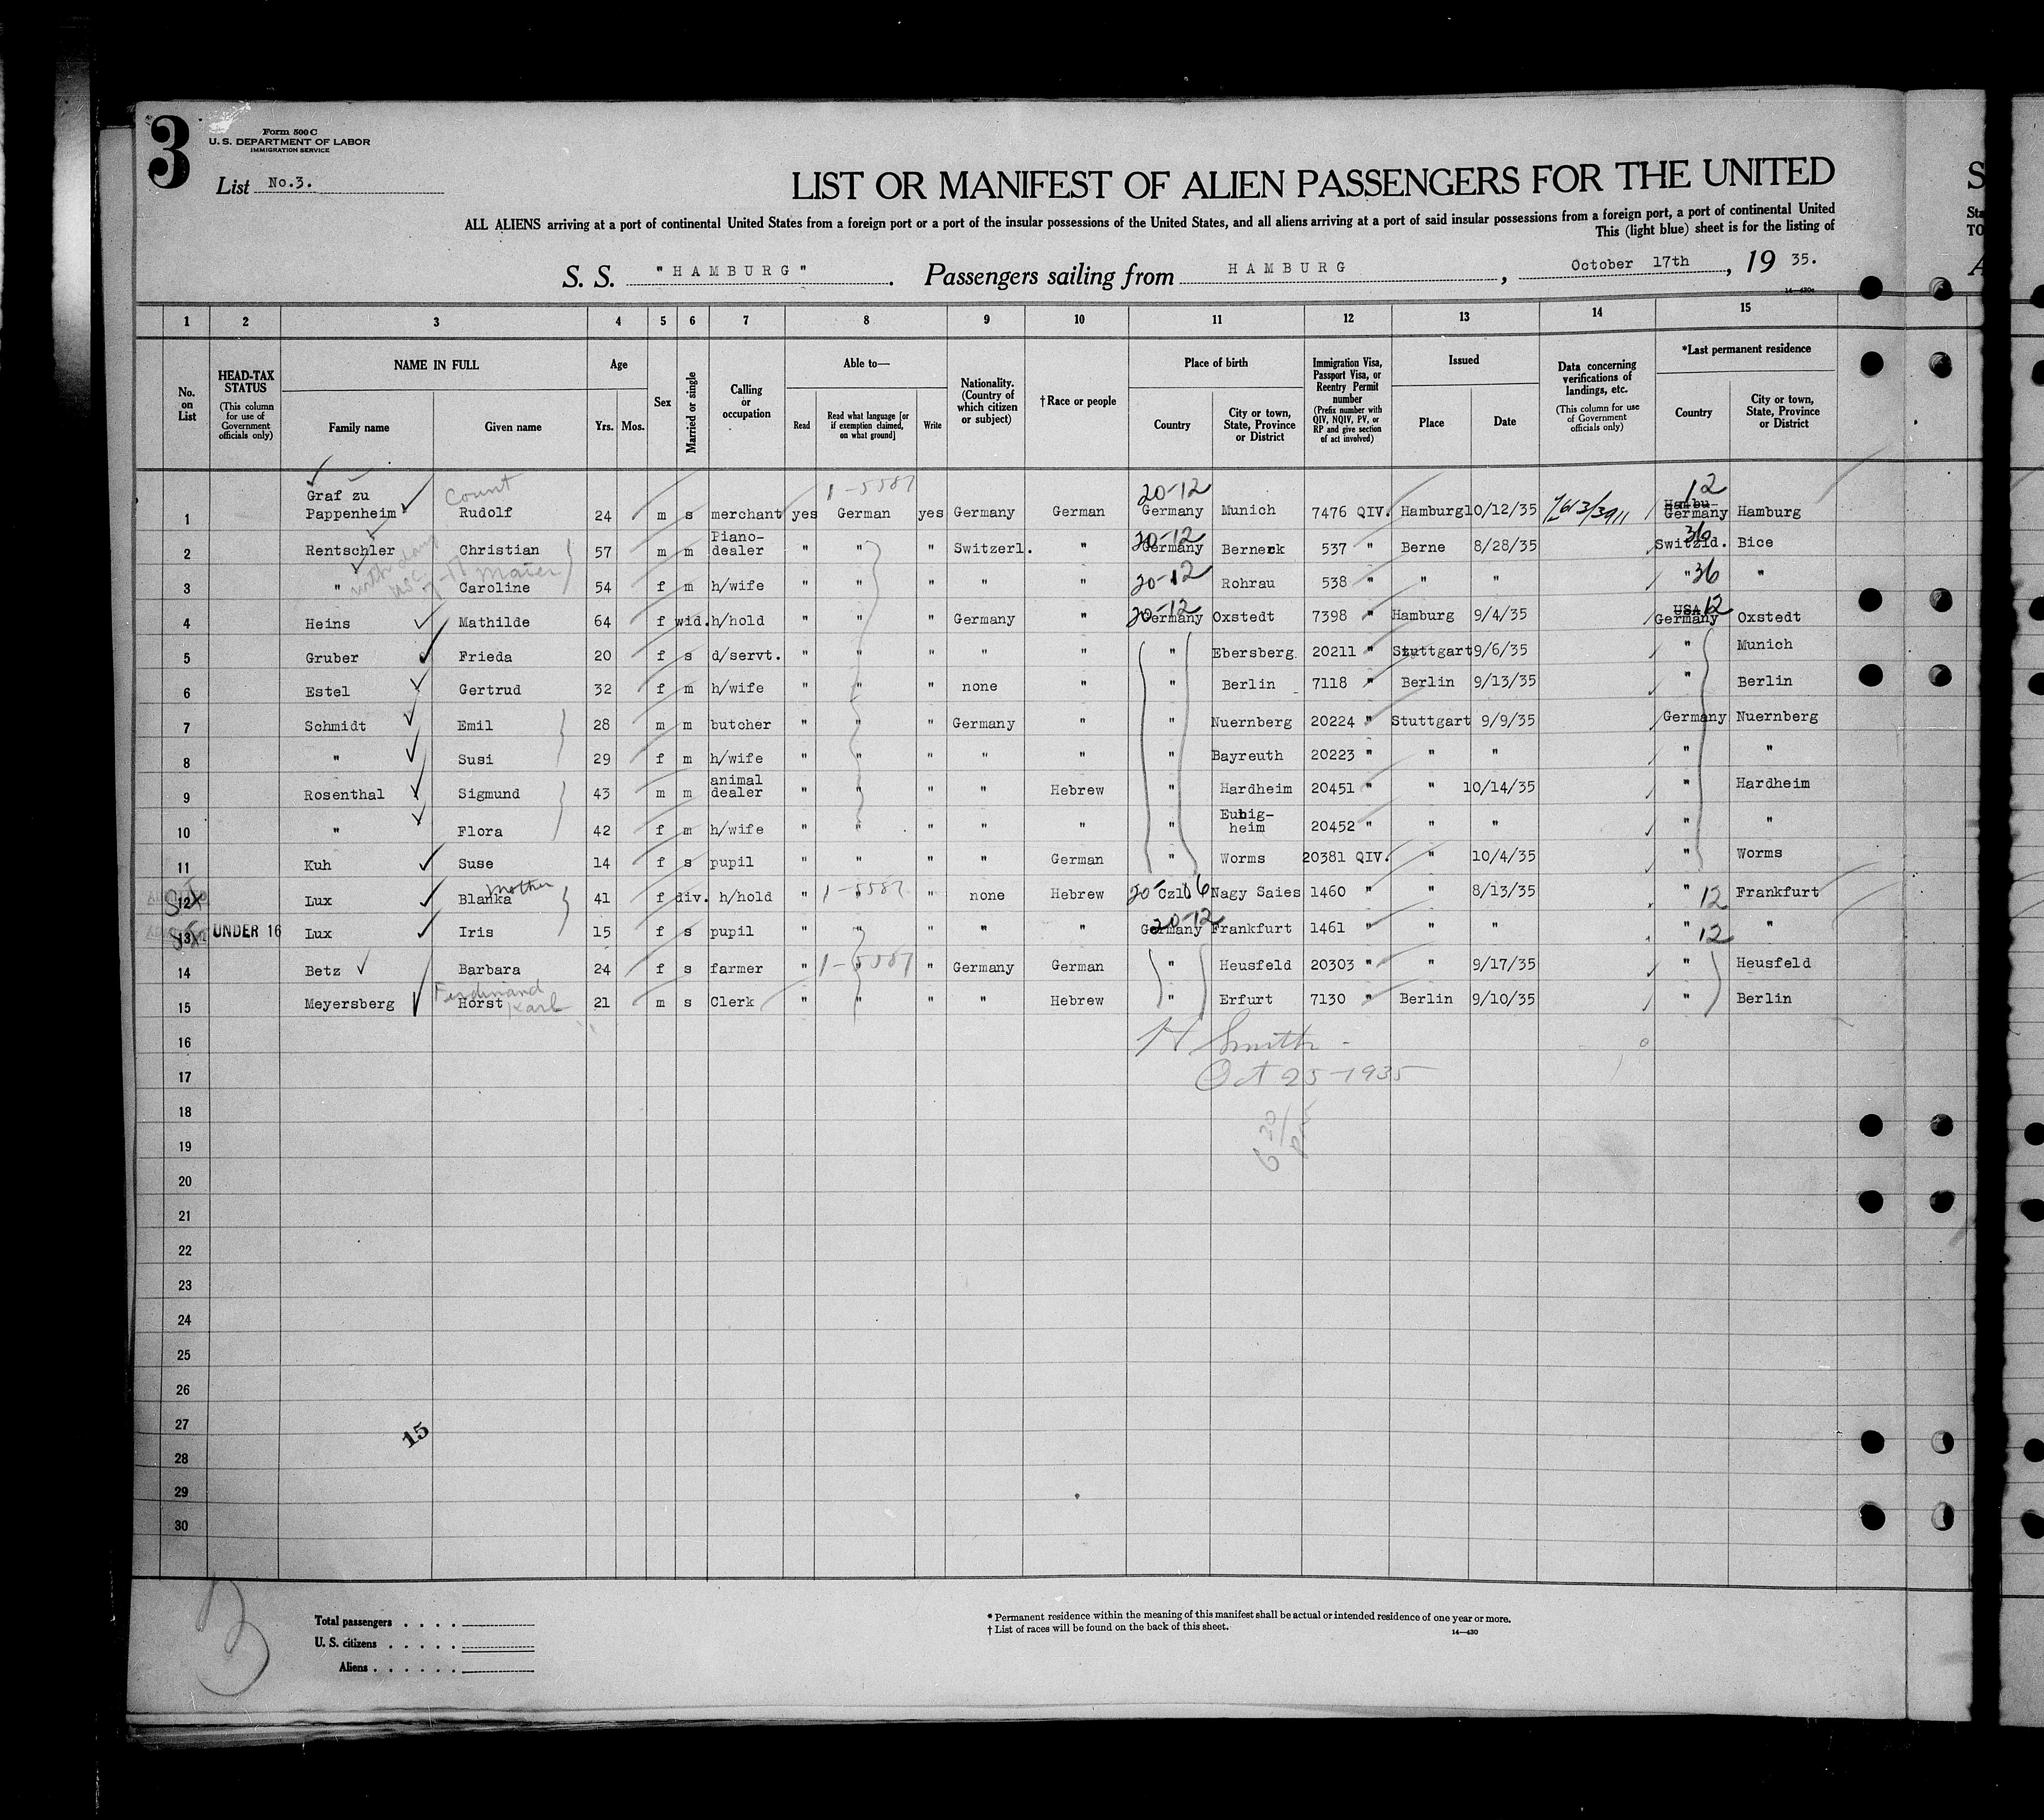 3
Form 500 C
U. S. DEPARTMENT OF LABOR
IMMIGRATION SERVICE
List No.3.
LIST OR MANIFEST OF ALIEN PASSENGERS FOR THE UNITED
ALL ALIENS arriving at a port of continental United States from a foreign port or a port of the insular possessions of the United States, and all aliens arriving at a port of said insular possessions from a foreign port, a port of continental United
This (light blue) sheet is for the listing of
S. S. "HAMBURG". Passengers sailing from HAMBURG, October 17th, 19 35.
1 2 3 4 5 6 7 8 9 10 11 12 13 14 15
No. on List
HEAD-TAX STATUS (This column for use of Government officials only)
NAME IN FULL
Family name Given name
Age
Yrs. Mos.
Sex
Married or single
Calling or occupation
Able to—
Read Read what language [or if exemption claimed, on what ground] Write
Nationality. (Country of which citizen or subject)
† Race or people
Place of birth
Country City or town, State, Province or District
Immigration Visa, Passport Visa, or Reentry Permit number (Prefix number with QIV, NQIV, PV, or RP and give section of act involved)
Issued
Place Date
Data concerning verifications of landings, etc. (This column for use of Government officials only)
*Last permanent residence
Country City or town, State, Province or District
1 Graf zu Pappenheim Count Rudolf 24 m s merchant yes 1-5587 German yes Germany German 20-12 Germany Munich 7476 QIV. Hamburg 10/12/35 12 Hambu- Germany Hamburg
2 Rentschler Christian 57 m m Piano-dealer " " " Switzerl. " 20-12 Germany Berneck 537 " Berne 8/28/35 36 Switzld. Bice
3 " Caroline Maier 54 f m h/wife " " " " " 20-12 Rohrau 538 " " " " 36 "
4 Heins Mathilde 64 f wid. h/hold " " " Germany " 20-12 Germany Oxstedt 7398 " Hamburg 9/4/35 USA 12 Germany Oxstedt
5 Gruber Frieda 20 f s d/servt. " " " " " " Ebersberg 20211 " Stuttgart 9/6/35 " Munich
6 Estel Gertrud 32 f m h/wife " " " none " " Berlin 7118 " Berlin 9/13/35 " Berlin
7 Schmidt Emil 28 m m butcher " " " Germany " " Nuernberg 20224 " Stuttgart 9/9/35 Germany Nuernberg
8 " Susi 29 f m h/wife " " " " " " Bayreuth 20223 " " " " "
9 Rosenthal Sigmund 43 m m animal dealer " " " " Hebrew " Hardheim 20451 " " 10/14/35 " Hardheim
10 " Flora 42 f m h/wife " " " " " " Eubig-heim 20452 " " " " "
11 Kuh Suse 14 f s pupil " " " " German " Worms 20381 QIV. " 10/4/35 " Worms
12 Lux Blanka mother 41 f div. h/hold " 1-5587 " none Hebrew Czl. Nagy Saies 1460 " " 8/13/35 " 12 Frankfurt
13 UNDER 16 Lux Iris 15 f s pupil " " " " " 20-12 Germany Frankfurt 1461 " " " " 12 "
14 Betz Barbara 24 f s farmer " 1-5587 " " Germany German " Heusfeld 20303 " " 9/17/35 " Heusfeld
15 Meyersberg Ferdinand Horst Karl 21 m s Clerk " " " " Hebrew " Erfurt 7130 " Berlin 9/10/35 " Berlin
16 H Smith
17 Oct 25-1935
18
19
20
21
22
23
24
25
26
27
15
28
29
30
3
Total passengers . . . .
U. S. citizens . . . . .
Aliens . . . . . .
* Permanent residence within the meaning of this manifest shall be actual or intended residence of one year or more.
† List of races will be found on the back of this sheet.
14—430